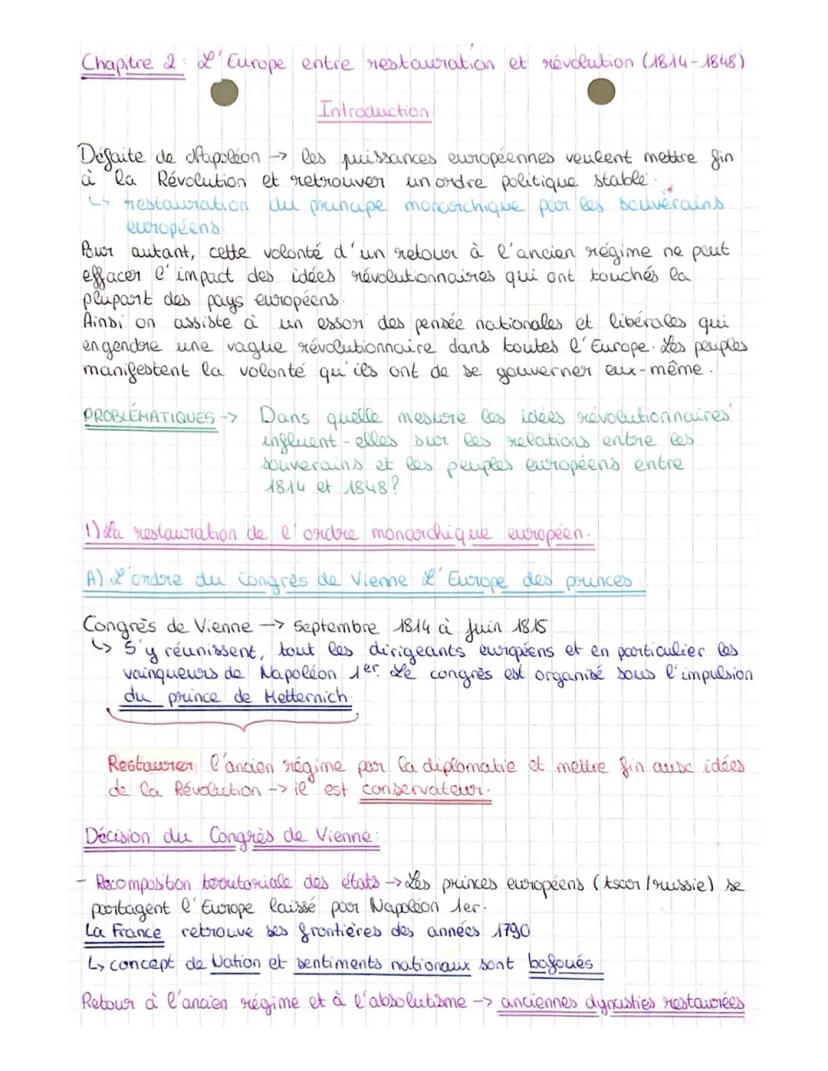 Chapitre 2 : L'Europe entre restauration et révolution (1814-1848)
Introduction
Défaite de Napoléon -> les puissances européennes veulent mettre fin
à la Révolution et retrouver un ordre politique stable.
↳ restauration du principe monarchique par les souverains
européens
Pour autant, cette volonté d'un retour à l'ancien régime ne peut
effacer l'impact des idées révolutionnaires qui ont touchés la
plupart des pays européens.
Ainsi on assiste à un essor des pensée nationales et libérales qui
engendre une vague révolutionnaire dans toutes l'Europe. Les peuples
manifestent la volonté qu'ils ont de se gouverner eux-même.
PROBLÉMATIQUES -> Dans quelle mesure les idées révolutionnaires
influent-elles sur les relations entre les
souverains et les peuples européens entre
1814 et 1848?
1) La restauration de l'ordre monarchique européen.
A) L'ordre du Congrès de Vienne L'Europe des princes.
Congrès de Vienne -> Septembre 1814 à Juin 1815
↳ S'y réunissent, tout les dirigeants européens et en particulier les
vainqueurs de Napoléon 1er. Le congrès est organisé sous l'impulsion
du prince de Metternich.
Restaurer l'ancien régime par la diplomatie et mettre fin aux idées
de la Révolution -> il est conservateur.
Décision du Congrès de Vienne:
- Recomposition territoriale des états -> Les princes européens (tsar/russie) se
partagent l'Europe laissé par Napoléon 1er.
La France retrouve ses frontières des années 1790
↳ concept de Nation et sentiments nationaux sont bafoués
Retour à l'ancien régime et à l'absolutisme -> anciennes dynasties restaurées